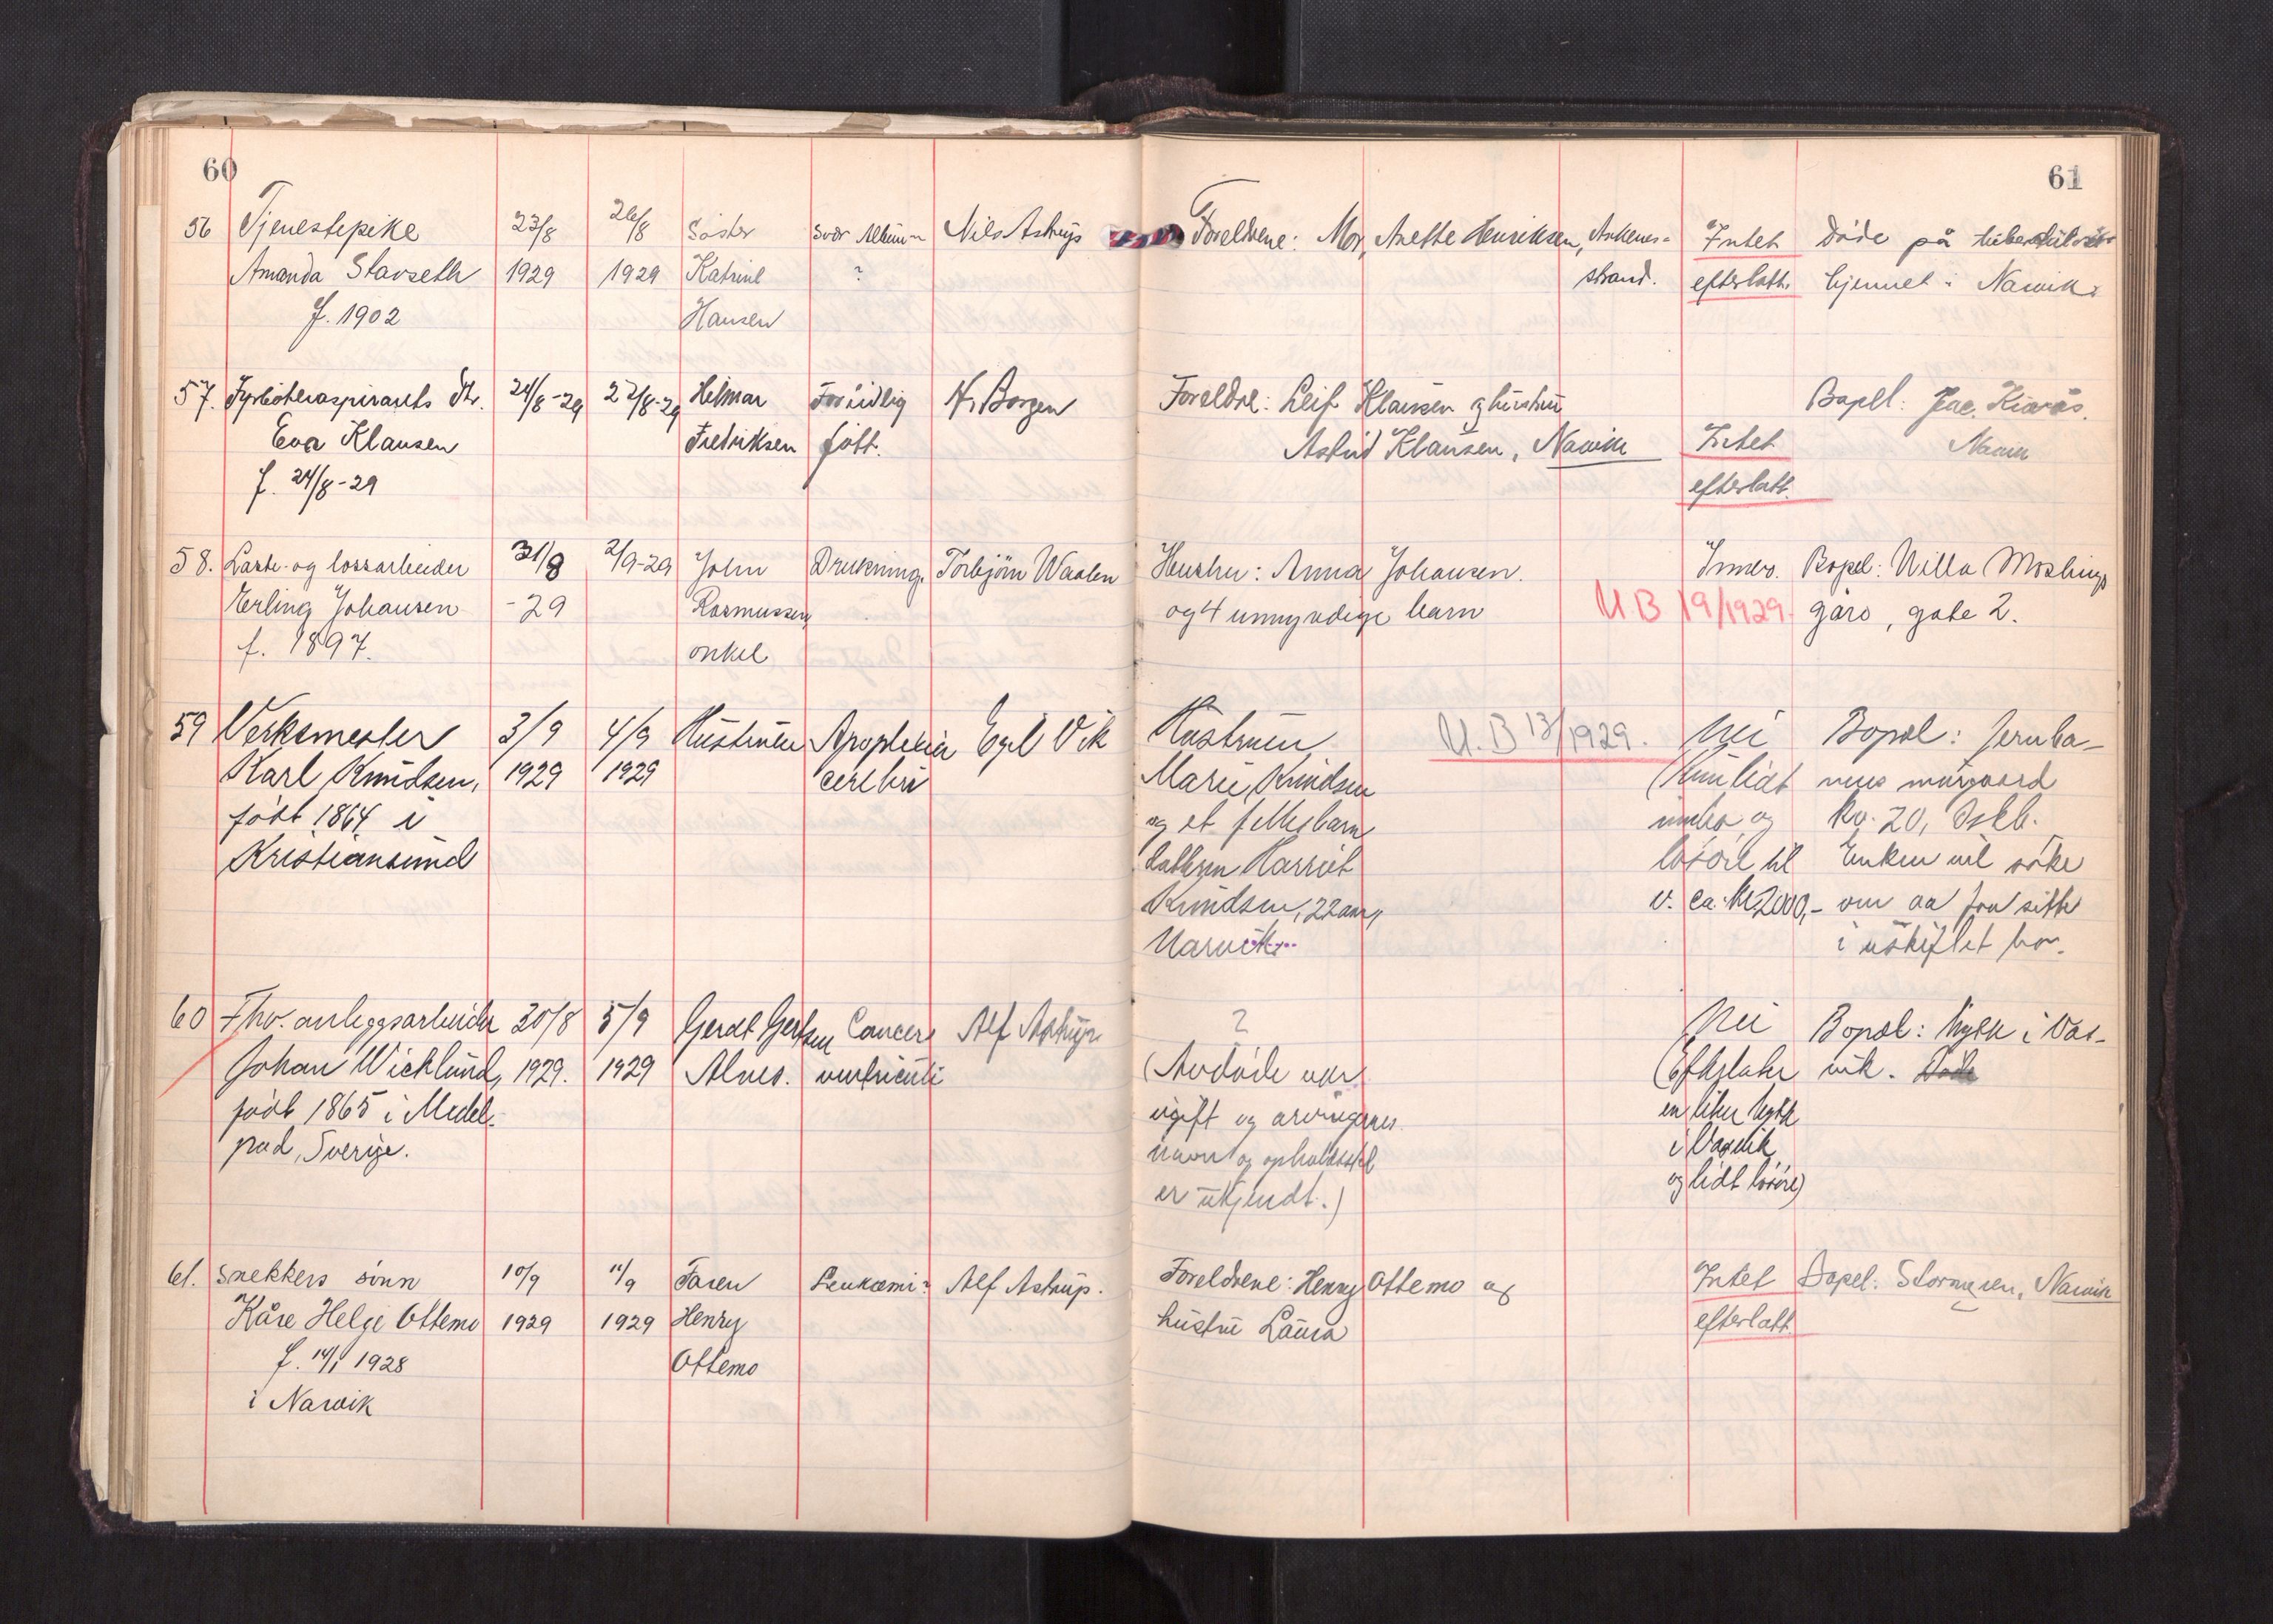 60
56 Tjenestepike 23/8 26/8 Søster Nils Astrup
Amanda Stavseth 1929 1929 Katrine ?
f. 1902 Hansen
57. Fyrbøteraspirants dtr. 24/8-29 27/8-29 Helmar Fortidlig H. Borgen
Eva Klausen Fredriksen født.
f. 24/8-29
58. Laste- og lossarbeider 31/8 2/9-29 John Drukning. Torbjørn Waalen
Erling Johansen -29 Rasmussen
f. 1897. onkel
59 Verksmester 3/9 4/9 Hustruen Apopleksia Egil Vik
Karl Knudsen, 1929 1929 cerebri
født 1864 i
Kristiansund
60 Fhv. anleggsarbeider 30/8 5/9 Gerdt Gertsen Cancer Alf Astrup
Johan Wicklund, 1929. 1929 Alnes. ventriculi
født 1865 i Medel-
pad, Sverige.
61. Snekkers sønn 10/9 11/9 Faren Leukæmi? Alf Astrup.
Kåre Helge Ottemo 1929 1929 Henry
f. 14/1 1928 Ottemo
i Narvik
61
Foreldrene: Mor, Anette Henriksen, Ankenes- Intet Døde på tuberkuløse-
strand. efterlatt. hjemmet i Narvik.
Foreldre: Leif Klausen og hustru Bopel:
Astrid Klausen, Narvik Intet Narvik
efterlatt.
Hustru: Anna Johansen. Innbo. Bopel: Villa Moslings
og 4 umyndige barn U B 19/1929. gård, gate 2.
Hustruen U.B 13/1929. Nei Bopel: Jernba-
Marie Knudsen (Kun lidt nens murgaard
og et fellesbarn innbo og kv. 20, Oskb.
datteren Harriet løsøre til Enken vil søke
Knudsen, 22 aar, v. ca. kr. 2000,- om aa faa sitte
Narvik i uskiftet bo.
? Nei Bopel: Hytte i Vas-
(Avdøde var (Efterlater vik. Døde
ugift og arvingenes en liten hytte
navn og opholdssted i Vasvik
er ukjendt.) og lidt løsøre)
Foreldrene: Henry Ottemo og Intet Bopel: Stormyren, Narvik
hustru Laura efterlatt.